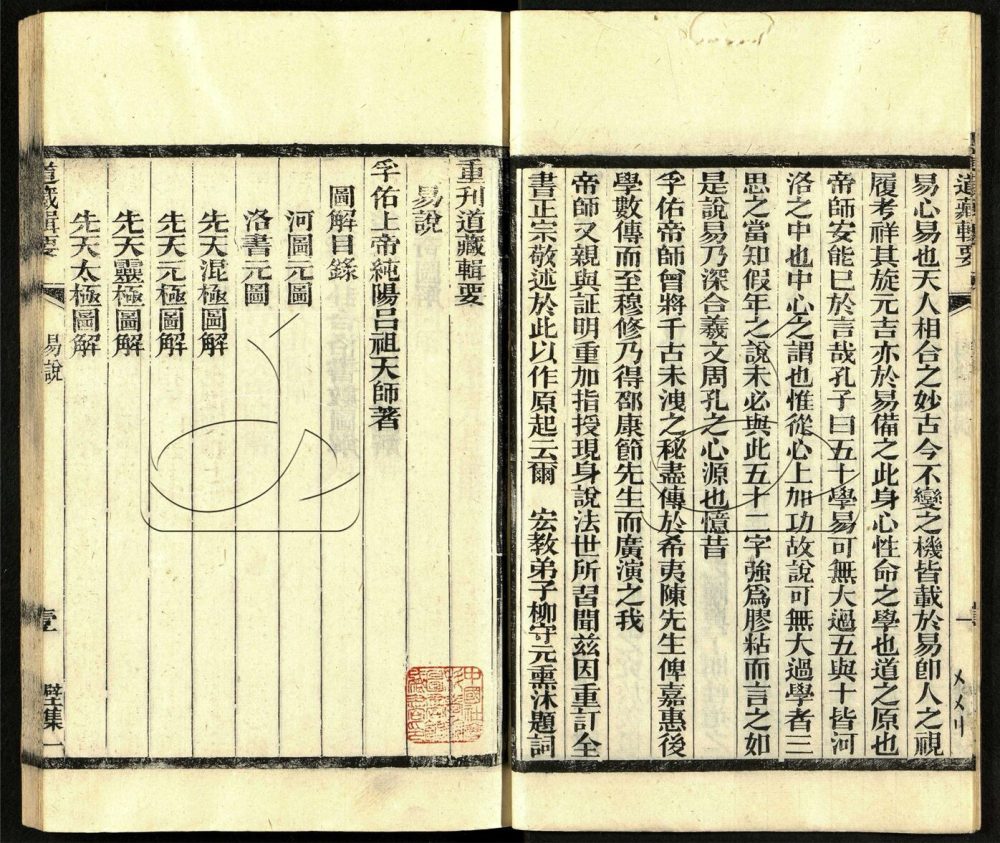 道藏輯要
一
易心易也天人相合之妙古今不變之機皆載於易卽人之視
履考祥其旋元吉亦於易備之此身心性命之學也道之原也
帝師安能已於言哉孔子曰五十學易可無大過五與十皆河
洛之中也中心之謂也惟從心上加功故說可無大過學者三
思之當知假年之說未必與此五十二字強爲膠粘而言之如
是說易乃深合羲文周孔之心源也憶昔
孚佑帝師曾將千古未洩之秘盡傳於希夷陳先生俾嘉惠後
學數傳而至穆修乃得邵康節先生而廣演之我
帝師又親與証明重加指授現身說法世所習聞茲因重訂全
書正宗敬述於此以作原起云爾 宏教弟子柳守元熏沐題詞
重刊道藏輯要
易說
孚佑上帝純陽呂祖天師著
圖解目錄
河圖元圖
洛書元圖
先天混極圖解
先天元極圖解
先天靈極圖解
先天太極圖解
道藏輯要 易說 壹 壁集一